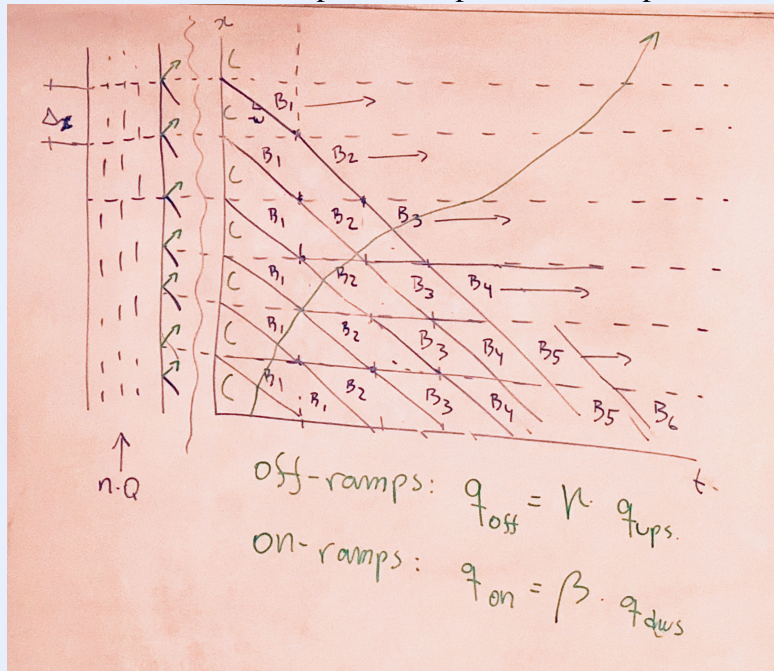 x
C
B₁
C
Δx
w
B₁
B₂
C
B₁
B₂
B₃
C
B₁
B₂
B₃
B₄
C
B₁
B₂
B₃
B₄
B₅
C
B₁
B₁
B₂
B₃
B₄
B₅
B₆
n.Q
t.
off-ramps: q_off = γ. q_ups.
on-ramps: q_on = β. q_dws